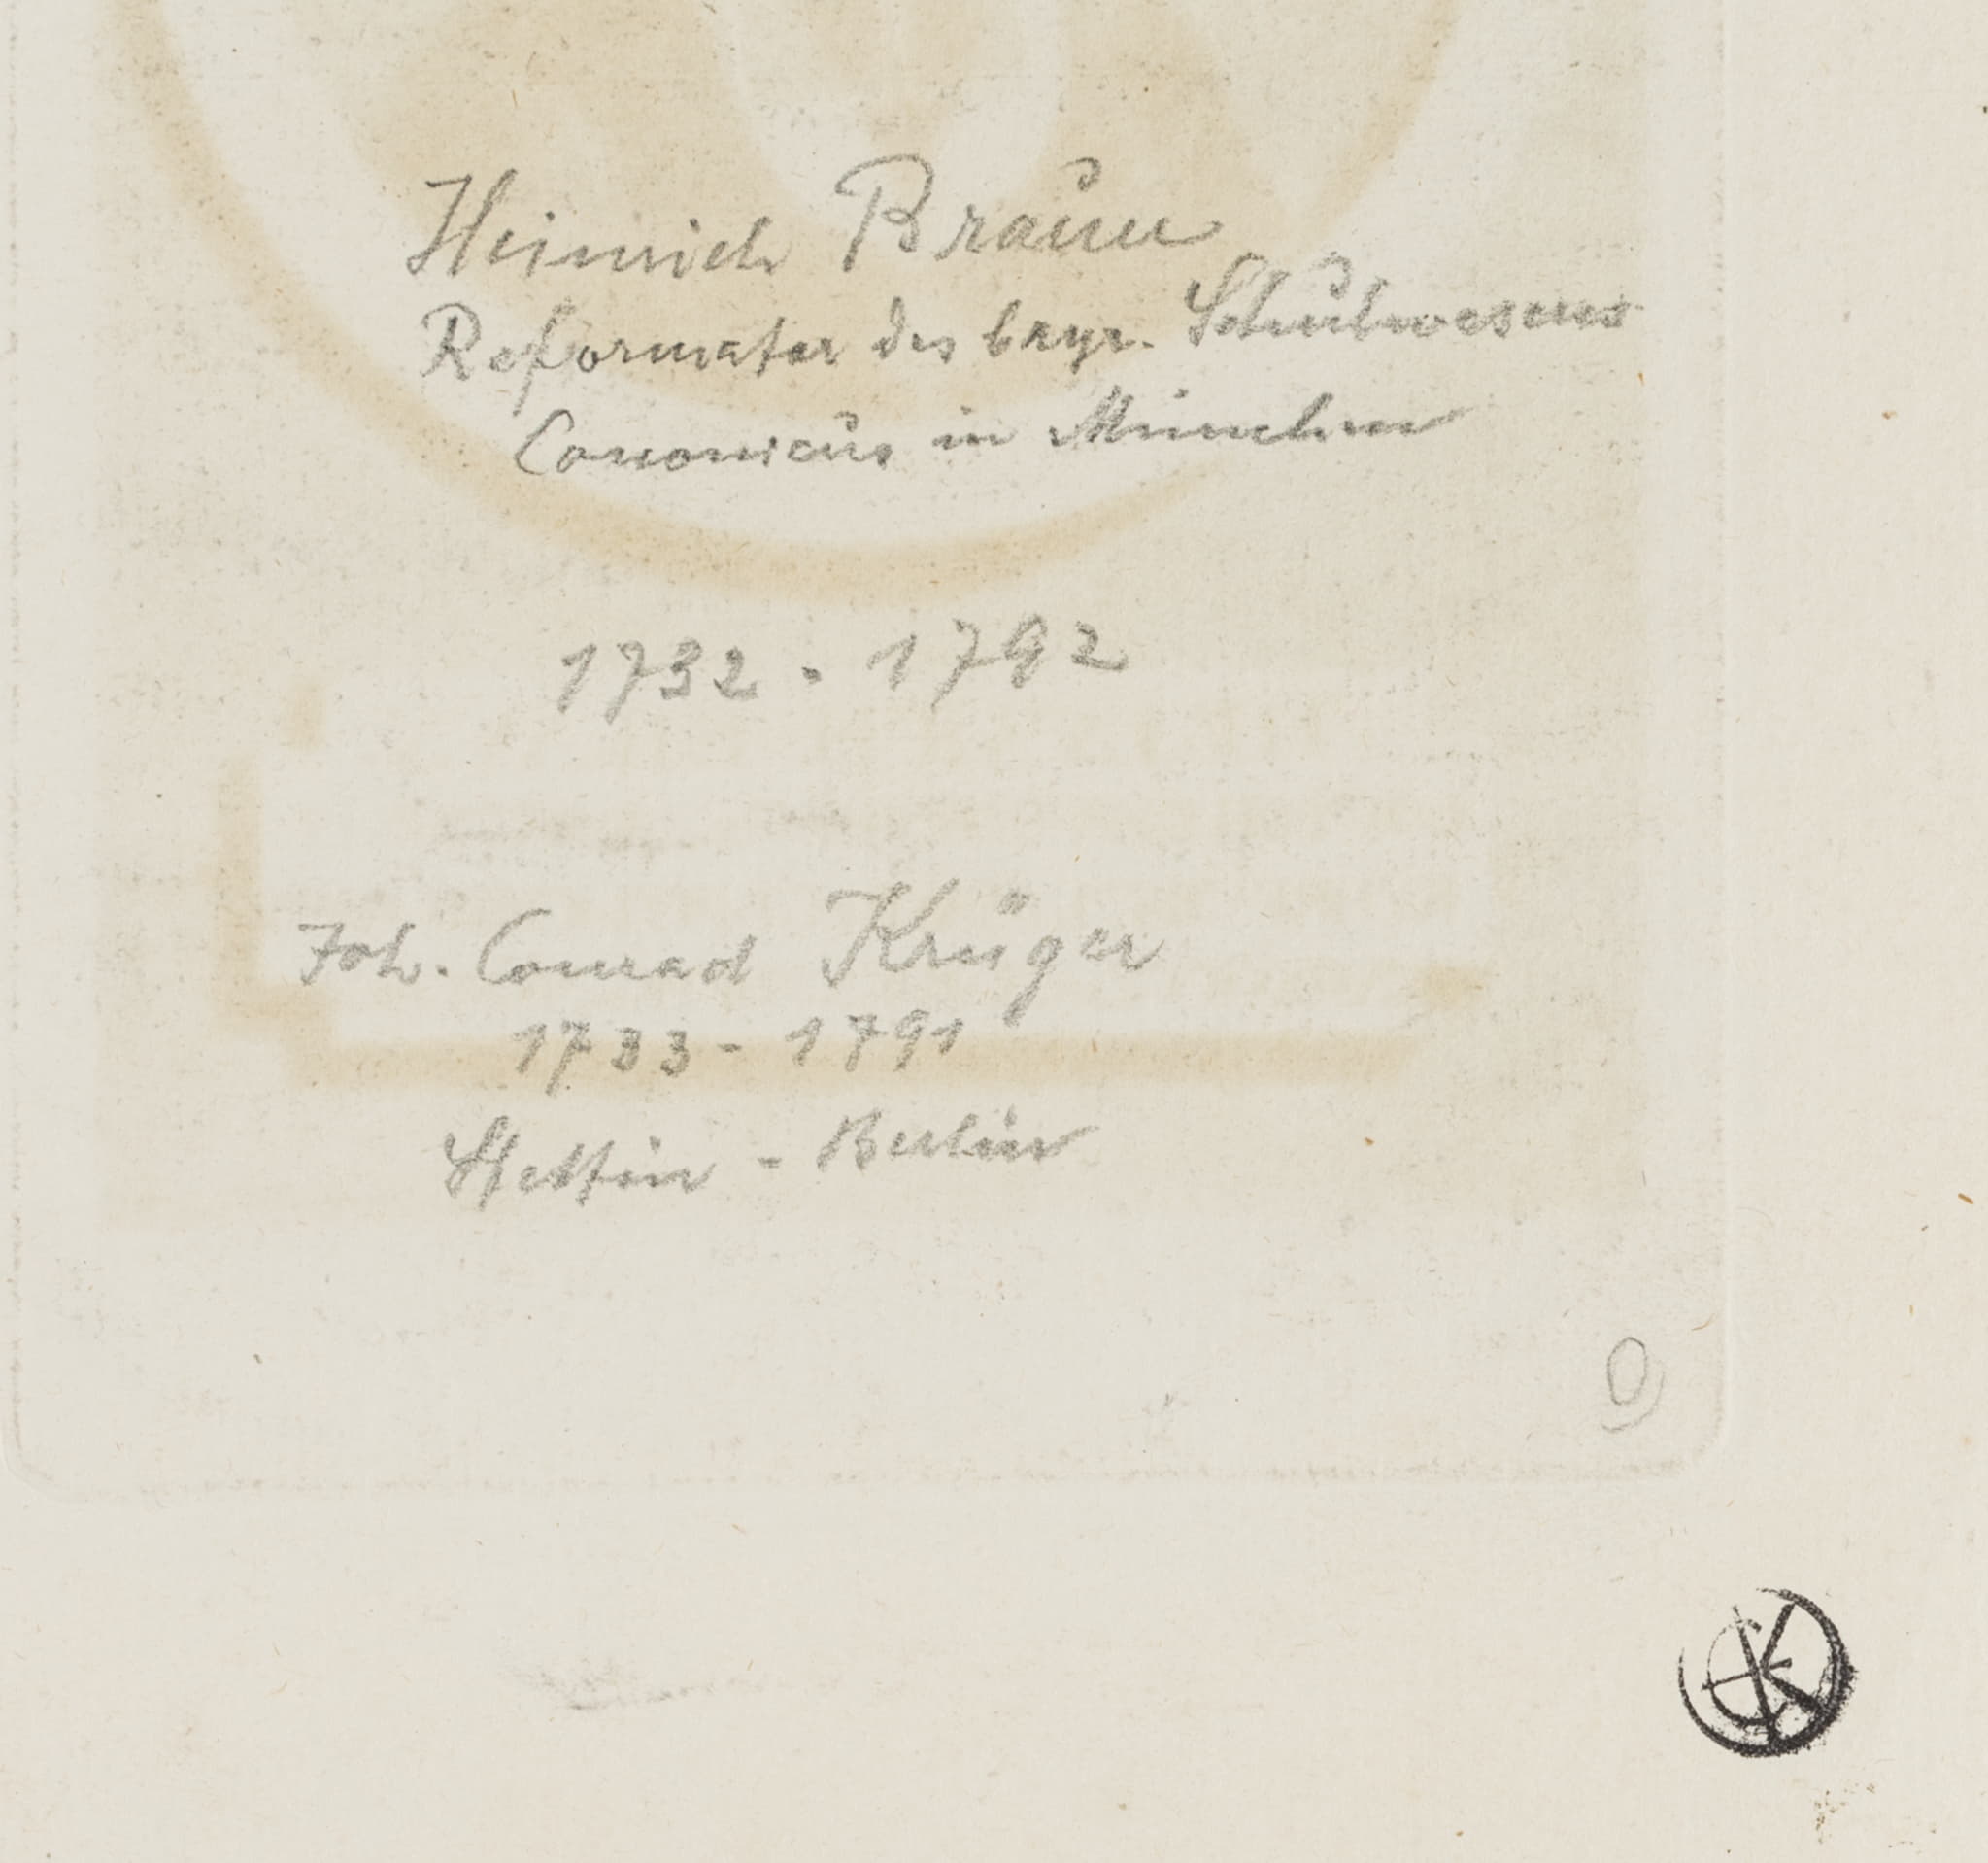 Heinrich Braun
Reformator des bayr. Schulwesens
Canonicus in München
1732 - 1792
Joh. Conrad Krüger
1733 - 1791
Stettin - Berlin